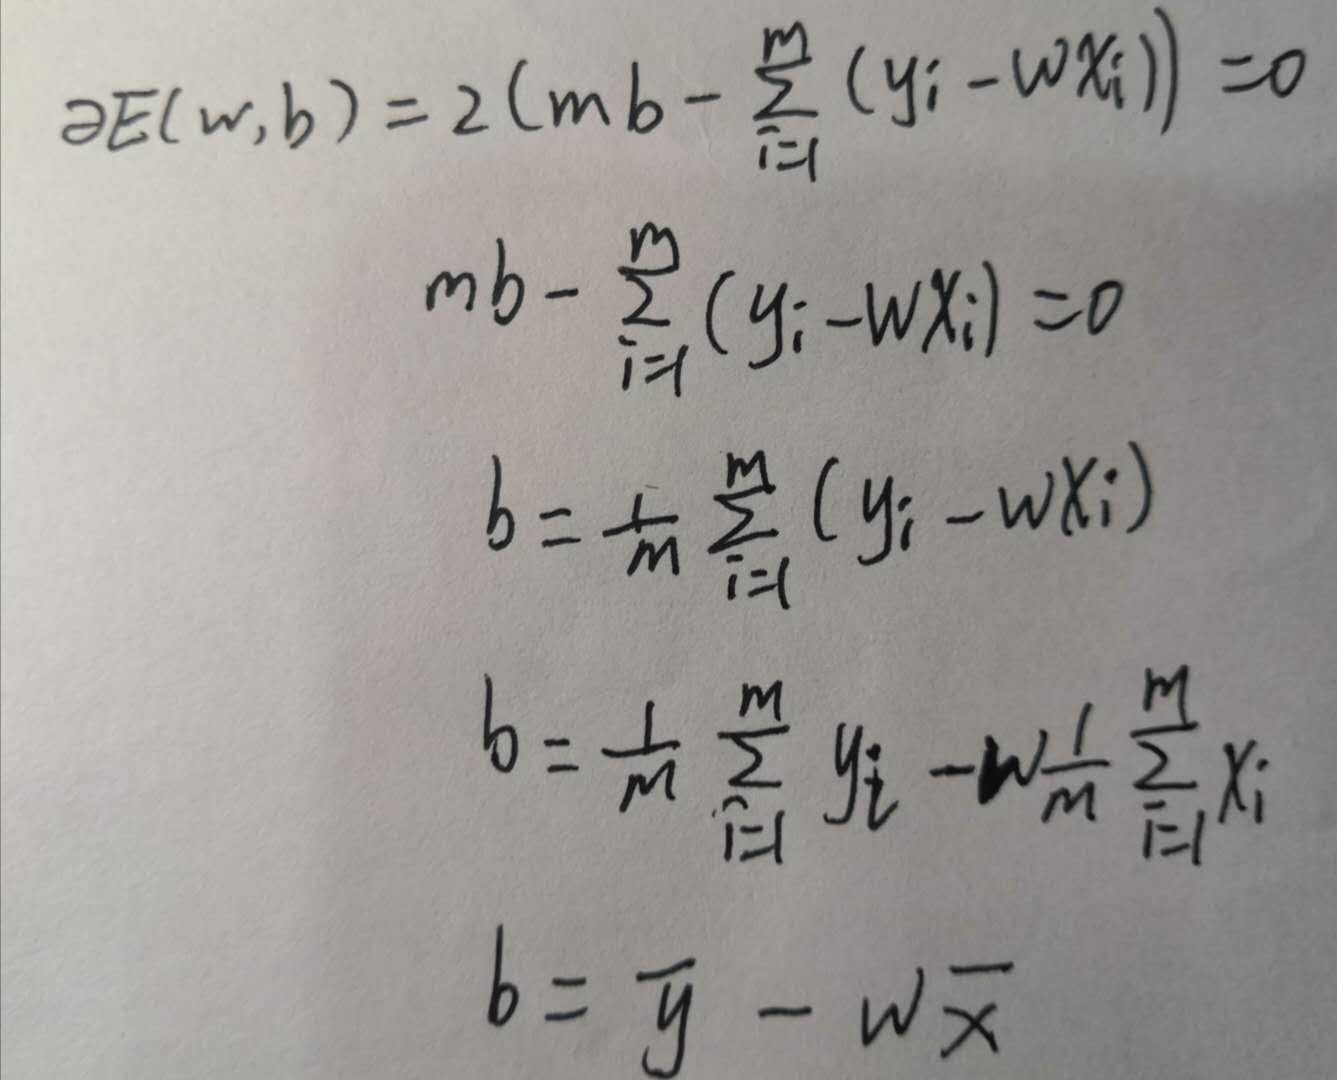 ∂E(w,b) = 2(mb - ∑_{i=1}^{m} (y_i - wx_i)) = 0
mb - ∑_{i=1}^{m} (y_i - wx_i) = 0
b = \frac{1}{m} ∑_{i=1}^{m} (y_i - wx_i)
b = \frac{1}{m} ∑_{i=1}^{m} y_i - w\frac{1}{m} ∑_{i=1}^{m} x_i
b = \overline{y} - w\overline{x}